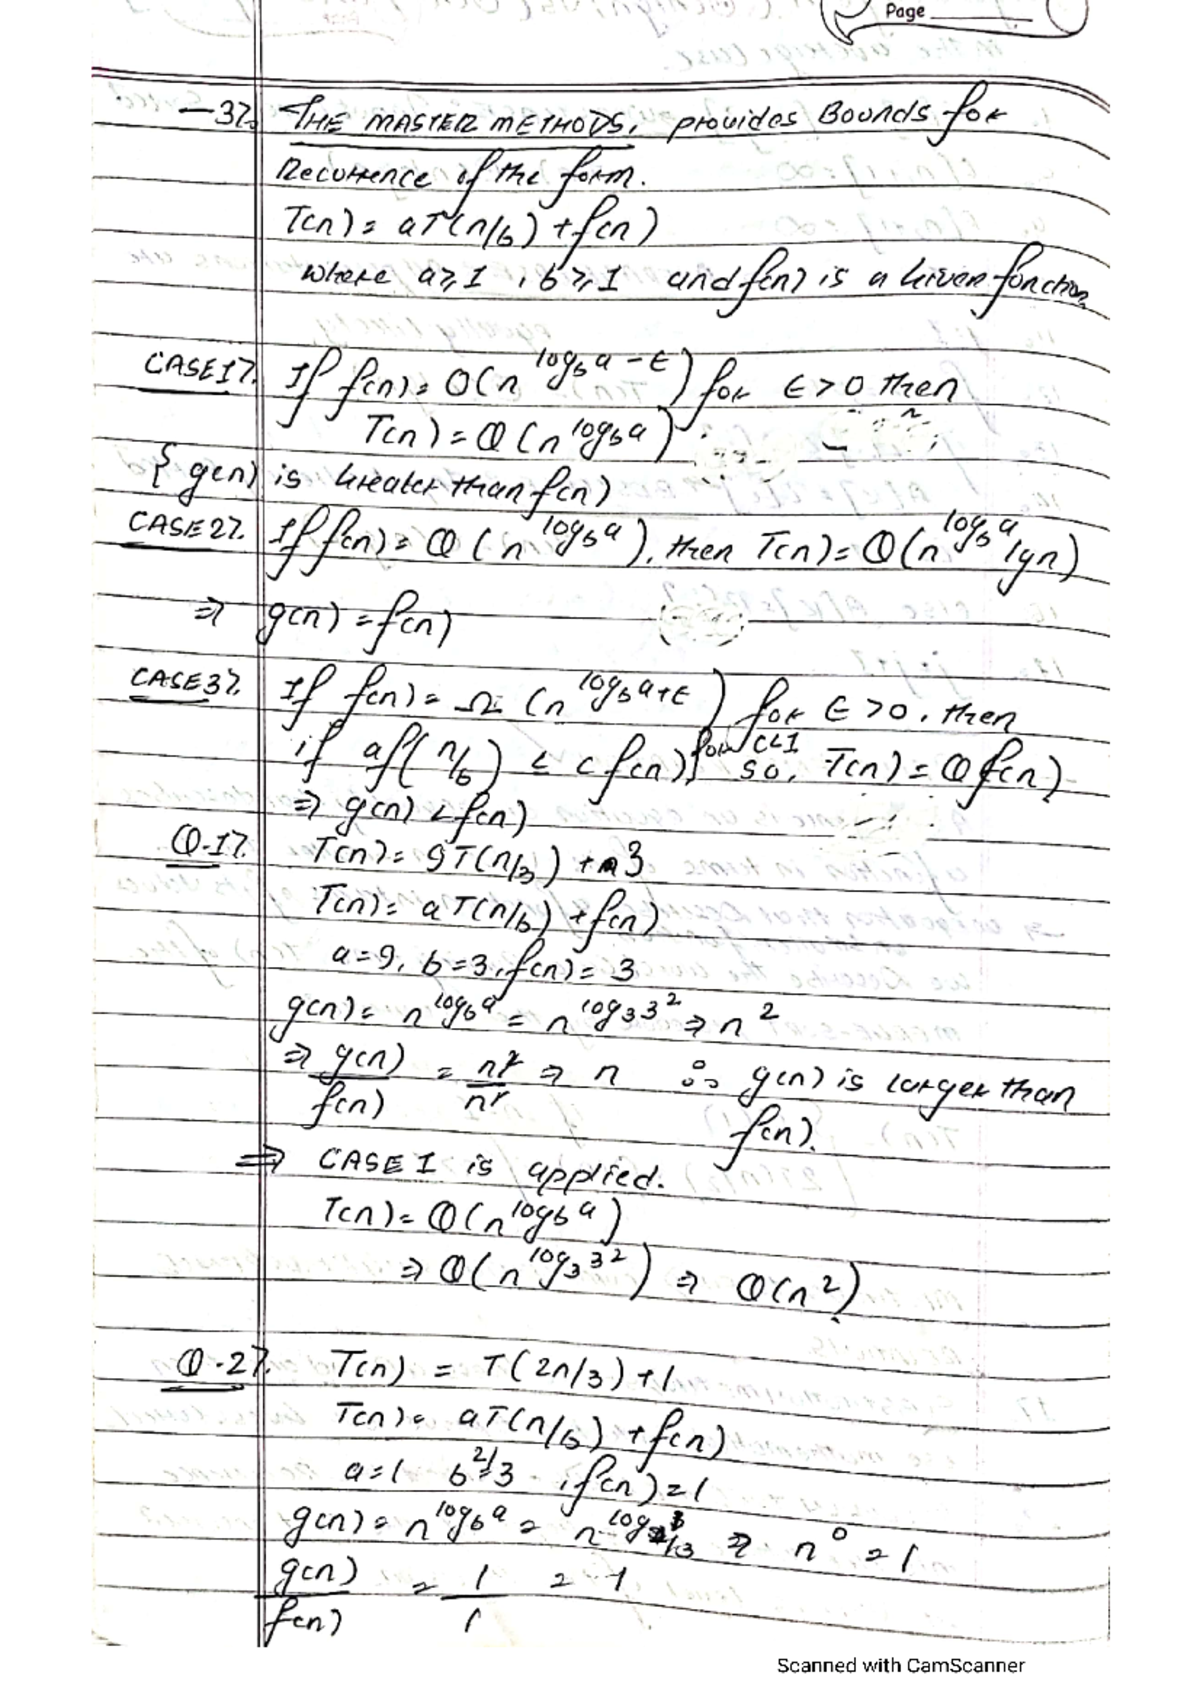 Page
→ 3). THE MASTER METHODS. provides Bounds for
Recurrence of the form.
T(n) = aT(n/b) + f(n)
where a≥1, b≥1 and f(n) is a Given function
CASE 1). If f(n) = O(n^log_b a - ε) for ε > 0 then
T(n) = Θ(n^log_b a)
{ g(n) is Greater than f(n)
CASE 2). If f(n) = Θ(n^log_b a), then T(n) = Θ(n^log_b a lgn)
⇒ g(n) = f(n)
CASE 3). If f(n) = Ω(n^log_b a+ε) for ε > 0. then
if af(n/b) ≤ c f(n)} for c<1 so, T(n) = Θf(n)
⇒ g(n) < f(n)
Q.1). T(n) = 9T(n/3) + 3
T(n) = aT(n/b) + f(n)
a=9, b=3, f(n) = 3
g(n) = n^log_b a = n^log_3 3^2 ⇒ n^2
⇒ g(n)/f(n) = n^2/n ⇒ n ∴ g(n) is larger than
f(n).
⇒ CASE I is applied.
T(n) = Θ(n^log_b a)
⇒ Θ(n^log_3 3^2) ⇒ Θ(n^2)
Q.2). T(n) = T(2n/3) + 1
T(n) = aT(n/b) + f(n)
a=1 b= , f(n) = 1
g(n) = n^log_b a = ⇒ n^0 = 1
g(n)/f(n) = 1/1 = 1
Scanned with CamScanner